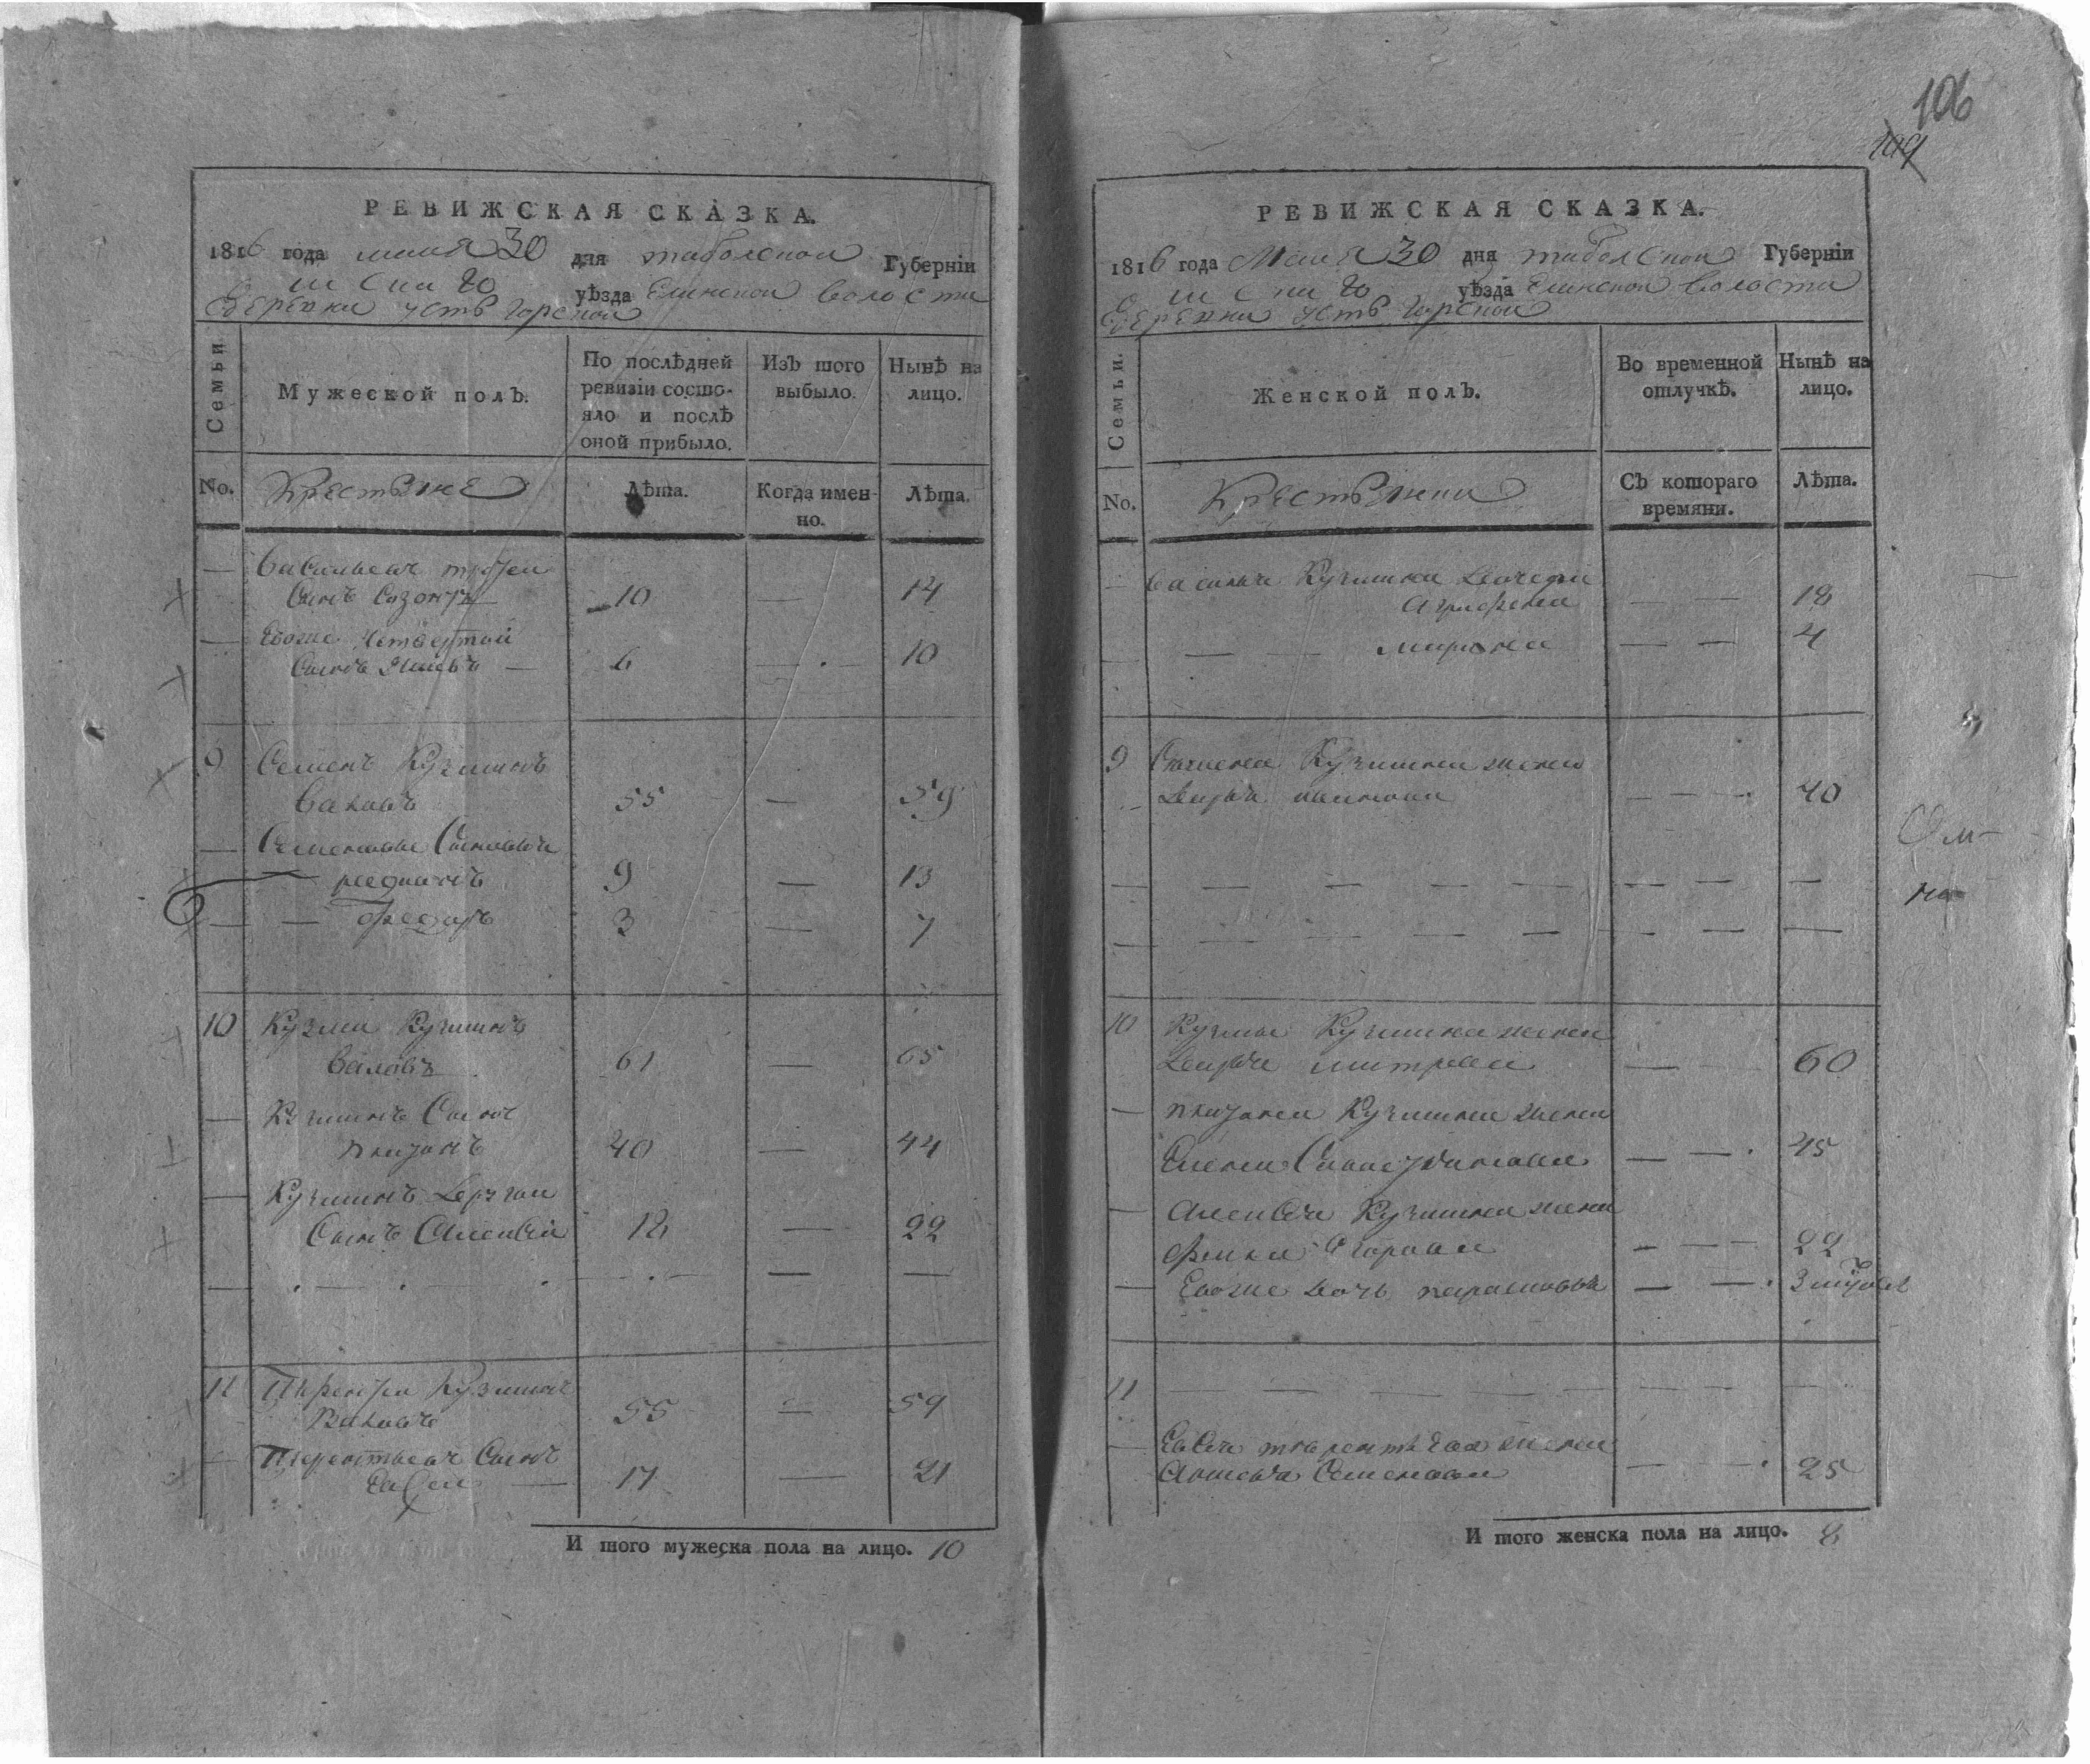 106
109
РЕВИЖСКАЯ СКАЗКА.
1816 года мая 30 дня таболской Губерніи
ишскаго уѣзда Еланской волости
деревни усть горской
Семьи
Мужеской полъ.
По послѣдней ревизіи состояло и послѣ оной прибыло.
Изъ того выбыло.
Нынѣ на лицо.
No.
Крестьяне
Лѣта.
Когда именно.
Лѣта.
— Васильевъ третей
сынъ Созонтъ — 10 — 14
— Евоже четвертой
сынъ — 6 — 10
9 Семенъ Кузминъ
Валовъ 55 — 59
— Семеновы сыновья
родионъ 9 — 13
— — Федоръ 3 — 7
10 Кузма Кузминъ
Валовъ 61 — 65
— Кузминъ сынъ
40 — 44
— Кузминъ другой
сынъ Алексей 18 — 22
11 Терентей Кузминъ
Валовъ 55 — 59
— Терентьевъ сынъ
Евсей — 17 — 21
И того мужеска пола на лицо. 10
РЕВИЖСКАЯ СКАЗКА.
1816 года Мая 30 дня таболской Губерніи
уѣзда Еланской волости
деревни усть горской
Семьи.
Женской полъ.
Во временной отлучкѣ.
Нынѣ на лицо.
No.
Крестьянки
Съ котораго времяни.
Лѣта.
— Василья Кузмина дочери
Аграфена — — 18
— — — марина — — 4
9 Семена Кузмина жена
Дарья — — 40
10 Кузмы Кузмина жена
Дарья митрева — — 60
— Кузмина жена
Елена — — 45
— Алексея Кузмина жена
Фекла Егорова — — 22
— Евоже дочь парасковья — — 3
11
— Евсея терентьева жена
Семенова — — 25
И того женска пола на лицо. 8